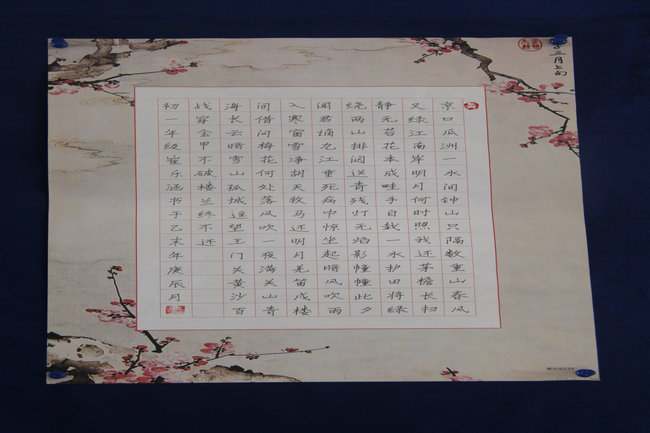 京口瓜洲一水间钟山只隔数重山春风
又绿江南岸明月何时照我还茅檐长扫
静无苔花木成畦手自栽一水护田将绿
绕两山排闼送青残灯无焰影幢幢此夕
闻君谪九江垂死病中惊坐起暗风吹雨
入寒窗雪净胡天牧马还明月羌笛戍楼
间借问梅花何处落风吹一夜满关山青
海长云暗雪山孤城遥望玉门关黄沙百
战穿金甲不破楼兰终不还
初一年级崔乐涵书于乙未年庚辰月
月上旬